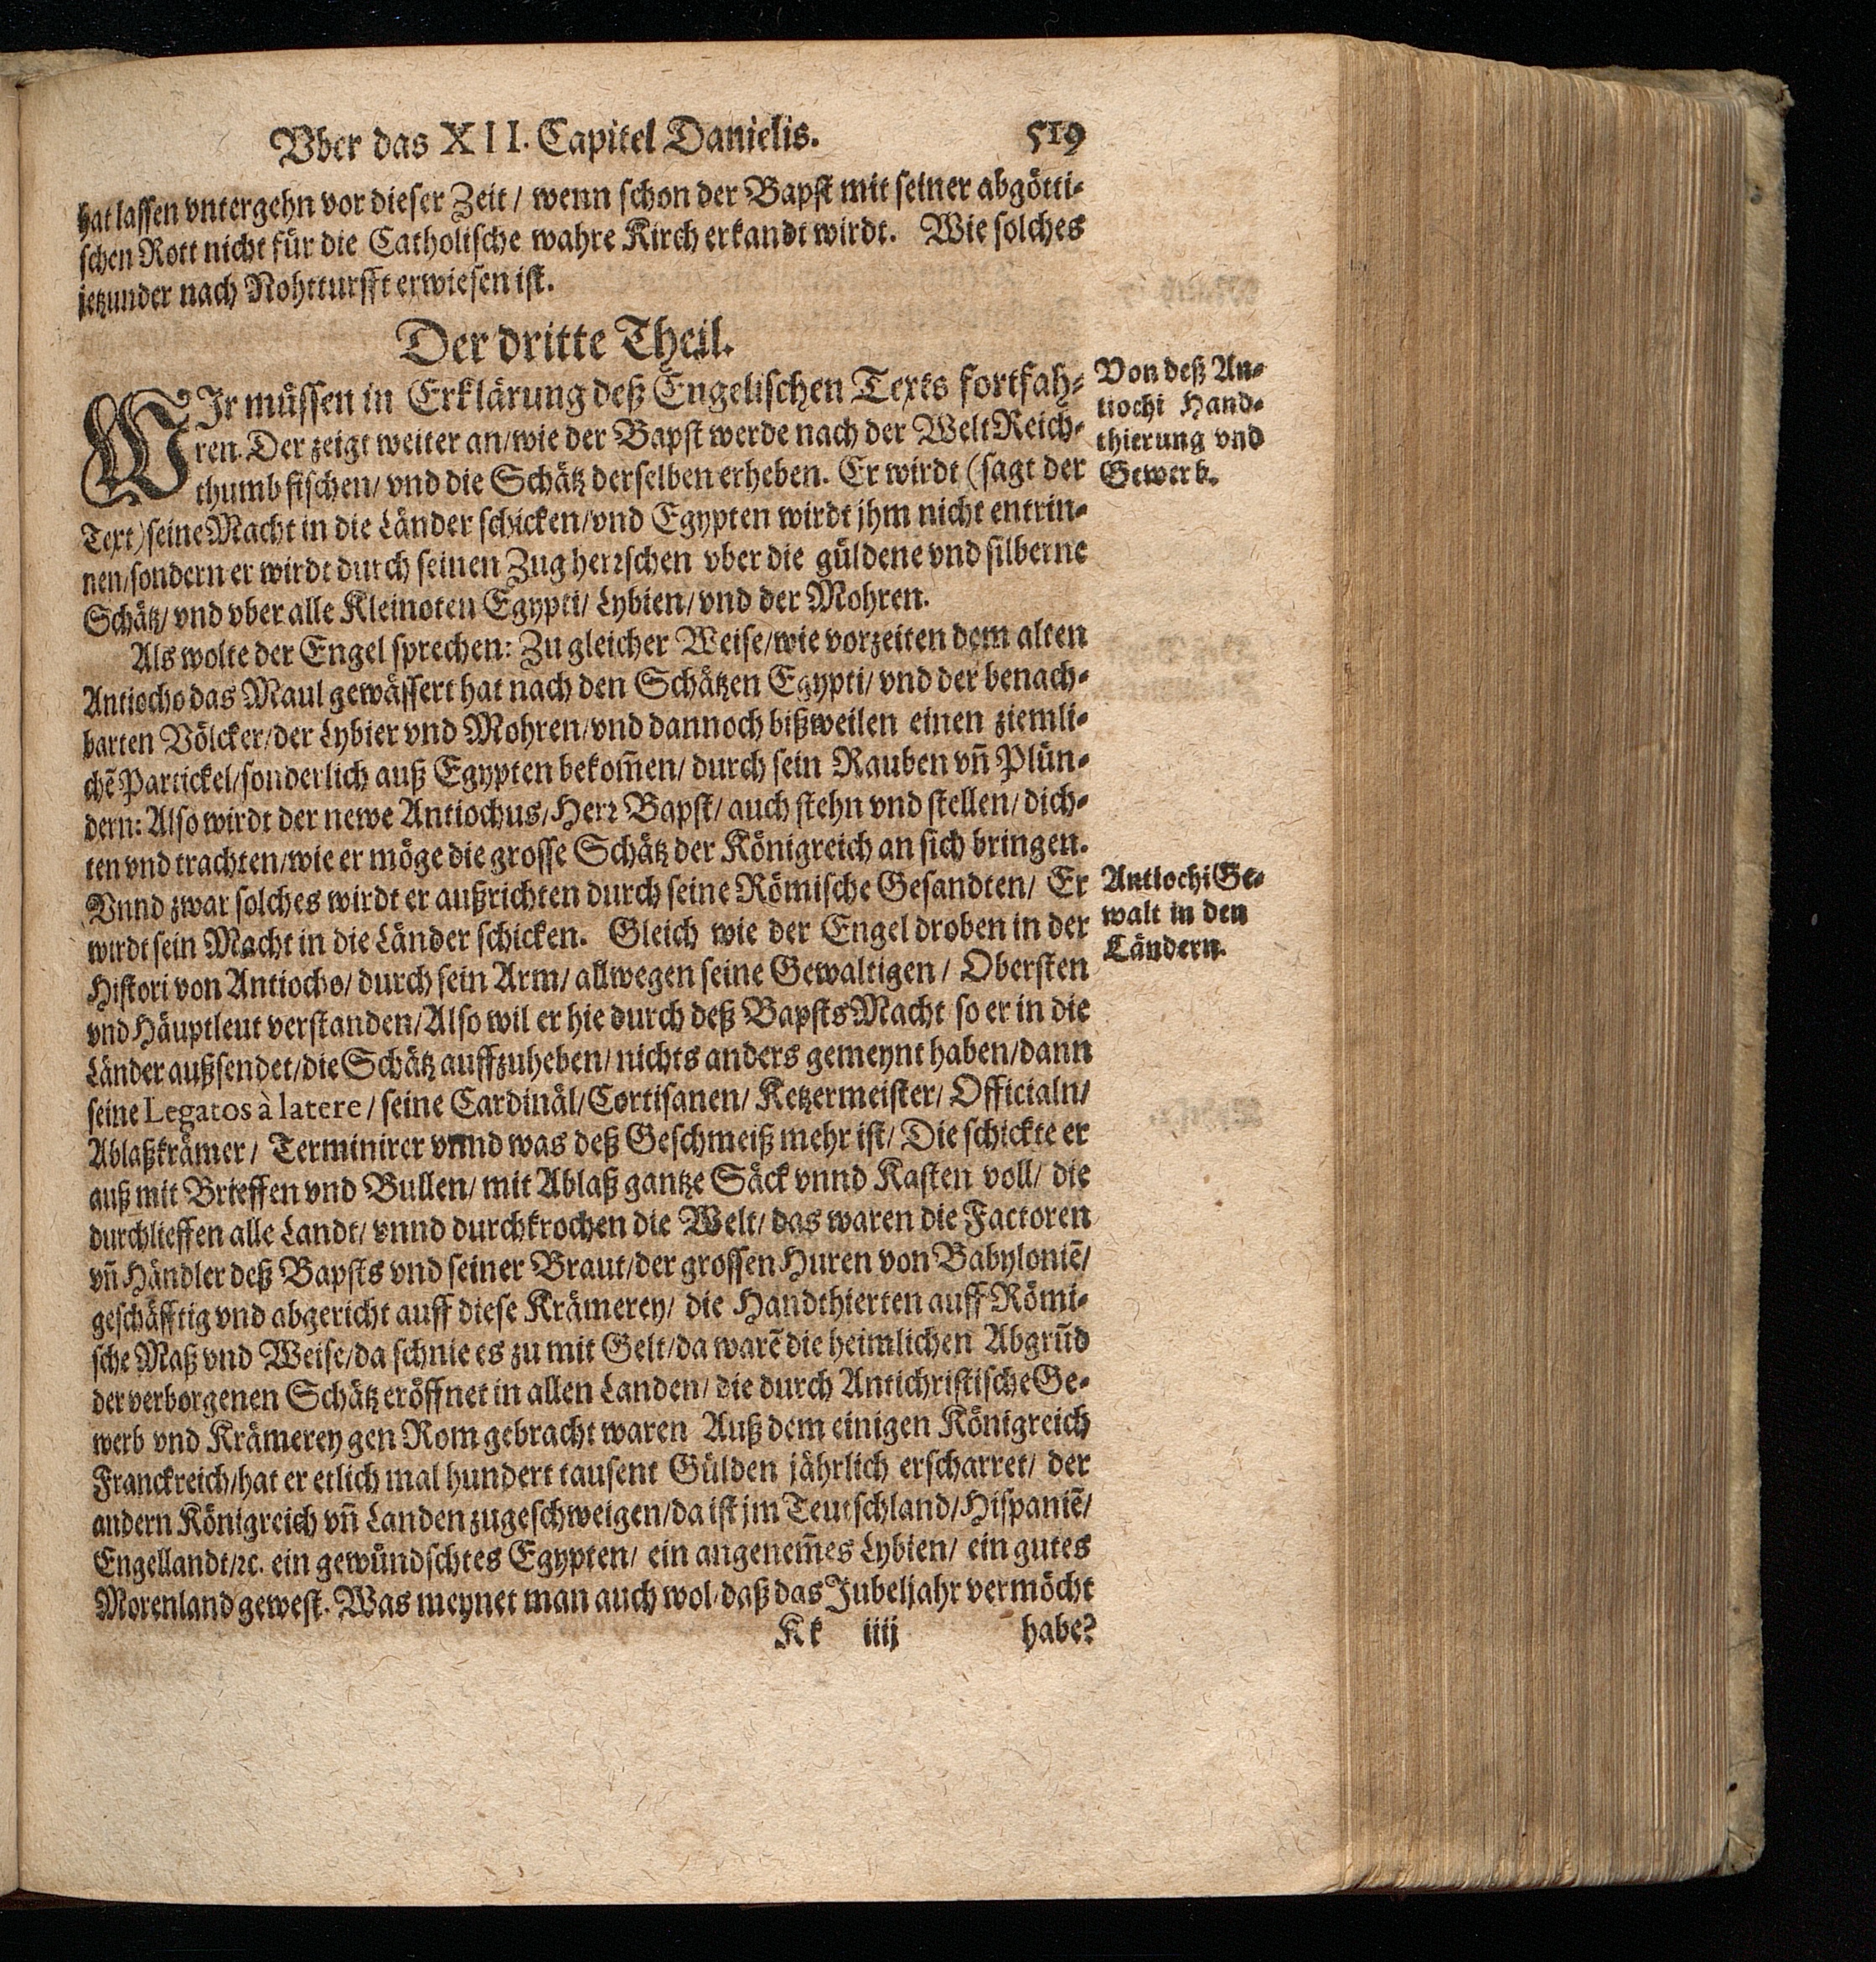 Vber das XII. Capitel Danielis. 519
hat lassen vntergehn vor dieser Zeit / wenn schon der Bapst mit seiner abgötti-
schen Rott nicht für die Catholische wahre Kirch erkandt wirdt. Wie solches
jetzunder nach Nohtturfft erwiesen ist.
Der dritte Theil.
WIr müssen in Erklärung deß Engelischen Texts fortfah-
ren. Der zeigt weiter an / wie der Bapst werde nach der Welt Reich-
thumb fischen / vnd die Schätz derselben erheben. Er wirdt (sagt der
Text) seine Macht in die Länder schicken / vnd Egypten wirdt jhm nicht entrin-
nen / sondern er wirdt durch seinen Zug herrschen vber die güldene vnd silberne
Schätz / vnd vber alle Kleinoten Egypti / Lybien / vnd der Mohren.
Von deß An-
tiochi Hand-
thierung vnd
Gewerb.
Als wolte der Engel sprechen: Zu gleicher Weise / wie vorzeiten dem alten
Antiocho das Maul gewässert hat nach den Schätzen Egypti / vnd der benach-
barten Völcker / der Lybier vnd Mohren / vnd dannoch bißweilen einen ziemli-
chẽ Partickel / sonderlich auß Egypten bekom̃en / durch sein Rauben vñ Plün-
dern: Also wirdt der newe Antiochus / Herr Bapst / auch stehn vnd stellen / dich-
ten vnd trachten / wie er möge die grosse Schätz der Königreich an sich bringen.
Vnnd zwar solches wirdt er außrichten durch seine Römische Gesandten / Er
wirdt sein Macht in die Länder schicken. Gleich wie der Engel droben in der
Histori von Antiocho / durch sein Arm / allwegen seine Gewaltigen / Obersten
vnd Häuptleut verstanden / Also wil er hie durch deß Bapsts Macht so er in die
Länder außsendet / die Schätz auffzuheben / nichts anders gemeynt haben / dann
seine Legatos à latere / seine Cardinäl / Cortisanen / Ketzermeister / Officialn /
Ablaßkrämer / Terminirer vnnd was deß Geschmeiß mehr ist / Die schickte er
auß mit Brieffen vnd Bullen / mit Ablaß gantze Säck vnnd Kasten voll / die
durchlieffen alle Landt / vnnd durchkrochen die Welt / das waren die Factoren
vñ Händler deß Bapsts vnd seiner Braut / der grossen Huren von Babyloniẽ /
geschäfftig vnd abgericht auff diese Krämerey / die Handthierten auff Römi-
sche Maß vnd Weise / da schnie es zu mit Gelt / da warẽ die heimlichen Abgrũd
der verborgenen Schätz eröffnet in allen Landen / die durch Antichristische Ge-
werb vnd Krämerey gen Rom gebracht waren Auß dem einigen Königreich
Franckreich / hat er etlich mal hundert tausent Gülden jährlich erscharret / der
andern Königreich vñ Landen zugeschweigen / da ist jm Teutschland / Hispaniẽ /
Engellandt / ꝛc. ein gewündschtes Egypten / ein angenem̃es Lybien / ein gutes
Morenland gewest. Was meynet man auch wol / daß das Jubeljahr vermöcht
Antiochi Ge-
walt in den
Ländern.
Kk iiij habe?